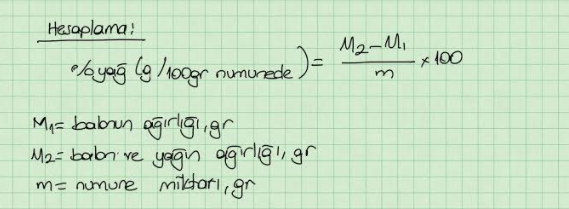 Hesaplama:
% yağ (g/100gr numunede) = M₂-M₁ / m × 100
M₁= balonun ağırlığı, gr
M₂= balon ve yağın ağırlığı, gr
m= numune miktarı, gr